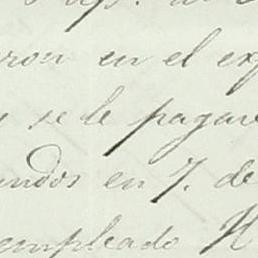 ron en el ex
se le pagar
undos en 7. de
empleado